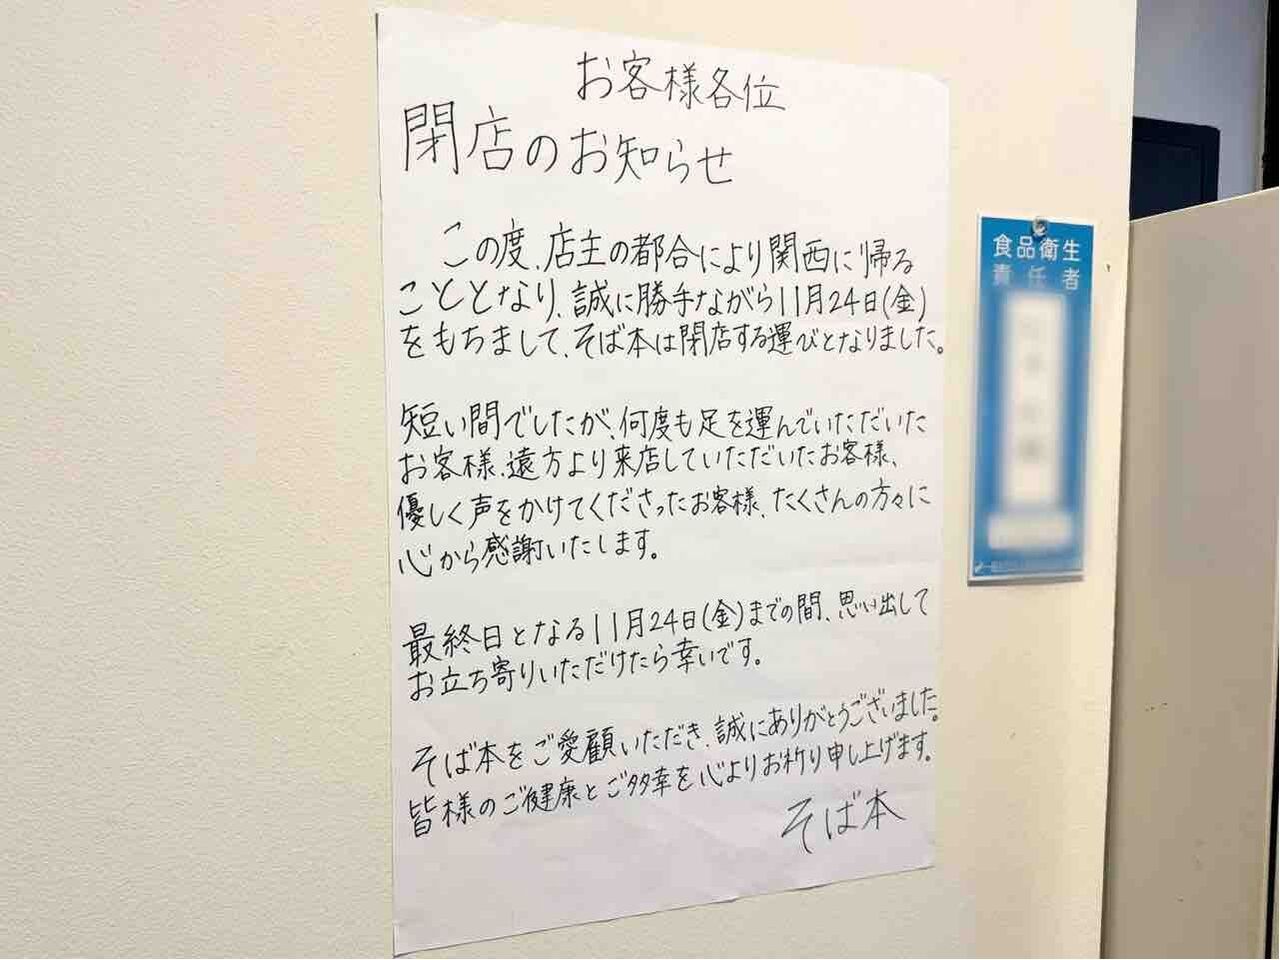 お客様各位
閉店のお知らせ
この度、店主の都合により関西に帰る
こととなり、誠に勝手ながら11月24日(金)
をもちまして、そば本は閉店する運びとなりました。
短い間でしたが、何度も足を運んでいただいた
お客様、遠方より来店していただいたお客様、
優しく声をかけてくださったお客様、たくさんの方々に
心から感謝いたします。
最終日となる11月24日(金)までの間、思い出して
お立ち寄りいただけたら幸いです。
そば本をご愛顧いただき、誠にありがとうございました。
皆様のご健康とご多幸を心よりお祈り申し上げます。
そば本
食品衛生
責任者